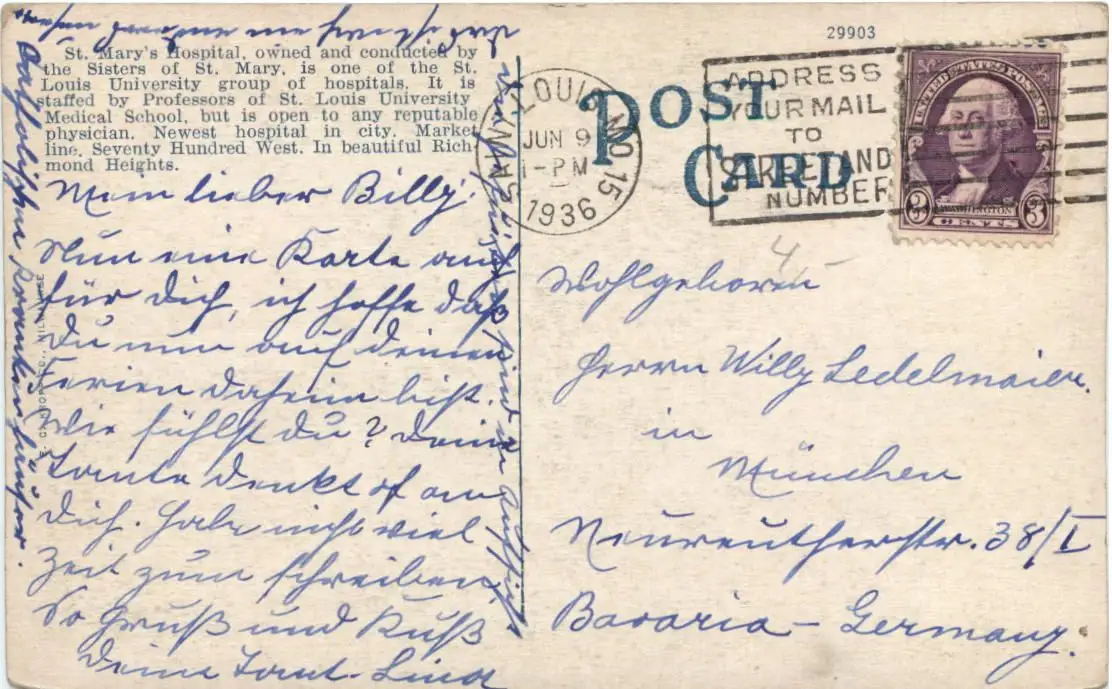 29903
St. Mary's Hospital, owned and conducted by
the Sisters of St. Mary, is one of the St.
Louis University group of hospitals. It is
staffed by Professors of St. Louis University
Medical School, but is open to any reputable
physician. Newest hospital in city. Market
line. Seventy Hundred West. In beautiful Rich-
mond Heights.
POST
CARD
ST. LOUIS, MO. 15
JUN 9
1-PM
1936
ADDRESS
YOUR MAIL
TO
STREET AND
NUMBER
UNITED STATES POSTAGE
3 WASHINGTON 3
CENTS
Mein lieber Billy.
Nun eine Karte auch
für Dich, ich hoffe daß
Du nun auf deinen
Ferien daheim bist.
Wie fühlst du? Deine
Tante denkt oft an
Dich. Habe nicht viel
Zeit zum schreiben,
So Gruß und Kuß
Deine Tant. Lina
4 -
Wohlgeboren
Herrn Willy Ledelmaier.
in
München
Neureutherstr. 38/I
Bavaria - Germany.
katholischen Krankenhäuser.